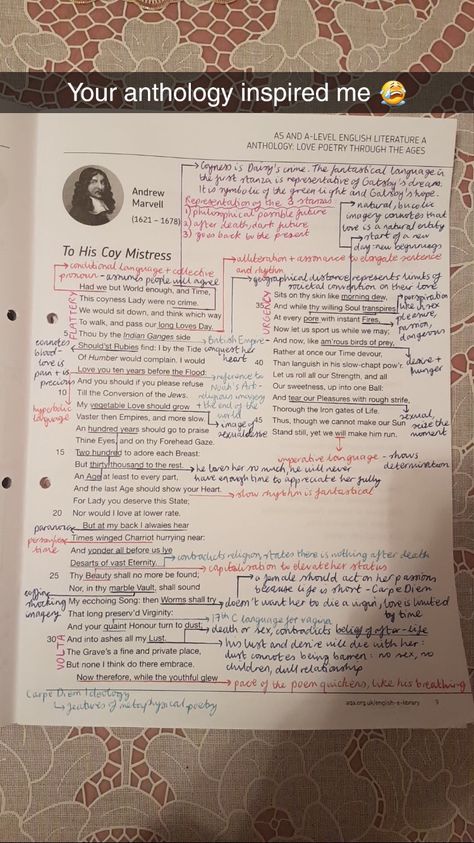 Your anthology inspired me 😭
AS AND A-LEVEL ENGLISH LITERATURE A
ANTHOLOGY: LOVE POETRY THROUGH THE AGES
Coyness is Daisy's crime. The fantastical language in
the first stanza is representative of Gatsby's dream.
It is symbolic of the green light and Gatsby's hope.
Representation of the 3 stanzas
1) philosophical possible future
2) after death, dark future
3) goes back to the present
natural, bucolic
imagery connotes that
love is a natural entity
start of a new
day: new beginnings
Andrew
Marvell
(1621 – 1678)
To His Coy Mistress
conditional language + collective
pronoun - assume people will agree
alliteration + assonance to elongate sentence
and rhythm
geographical distance represents limits of
societal convention on their love
FLATTERY
Had we but World enough, and Time,
This coyness Lady were no crime.
We would sit down, and think which way
To walk, and pass our long Loves Day.
5 Thou by the Indian Ganges side
Should'st Rubies find: I by the Tide
Of Humber would complain. I would
Love you ten years before the Flood:
And you should if you please refuse
10 Till the Conversion of the Jews.
My vegetable Love should grow
Vaster then Empires, and more slow.
An hundred years should go to praise
Thine Eyes, and on thy Forehead Gaze.
15 Two hundred to adore each Breast:
But thirty thousand to the rest.
An Age at least to every part,
And the last Age should show your Heart.
For Lady you deserve this State;
20 Nor would I love at lower rate.
But at my back I alwaies hear
Times winged Charriot hurrying near:
And yonder all before us lye
Desarts of vast Eternity.
25 Thy Beauty shall no more be found;
Nor, in thy marble Vault, shall sound
My ecchoing Song: then Worms shall try
That long preserv'd Virginity:
And your quaint Honour turn to dust;
30 And into ashes all my Lust.
The Grave's a fine and private place,
But none I think do there embrace.
Now therefore, while the youthful glew
URGENCY
Sits on thy skin like morning dew,
35 And while thy willing Soul transpires
At every pore with instant Fires,
Now let us sport us while we may;
And now, like am'rous birds of prey,
Rather at once our Time devour,
40 Than languish in his slow-chapt pow'r.
Let us roll all our Strength, and all
Our sweetness, up into one Ball:
And tear our Pleasures with rough strife,
Thorough the Iron gates of Life.
45 Thus, though we cannot make our Sun
Stand still, yet we will make him run.
perspiration
like, sex
pleasure,
passion,
dangerous
desire +
hunger
sexual,
seize the
moment
imperative language - shows
determination
connotes
blood -
love is
pain + is
precious
British Empire -
conquest her
heart
reference to
Noah's Ark -
religious imagery
+ the end of the
world
image of
sexualness
hyperbolic
language
he loves her so much, he will never
have enough time to appreciate her fully
slow rhythm is fantastical
paranoia
personifies
time
contradicts religion, states there is nothing after death
capitalisation to elevate her status
a female should act on her passions
because life is short - Carpe Diem
shocking
imagery
doesn't want her to die a virgin, love is limited
by time
17th C language for vagina
death or sex, contradicts belief of after-life
his lust and desire will die with her
dust connotes being barren: no sex, no
children, dull relationship
VOLTA
pace of the poem quickens, like his breathing
Carpe Diem Ideology
features of metaphysical poetry
aqa.org.uk/english-a-library
9